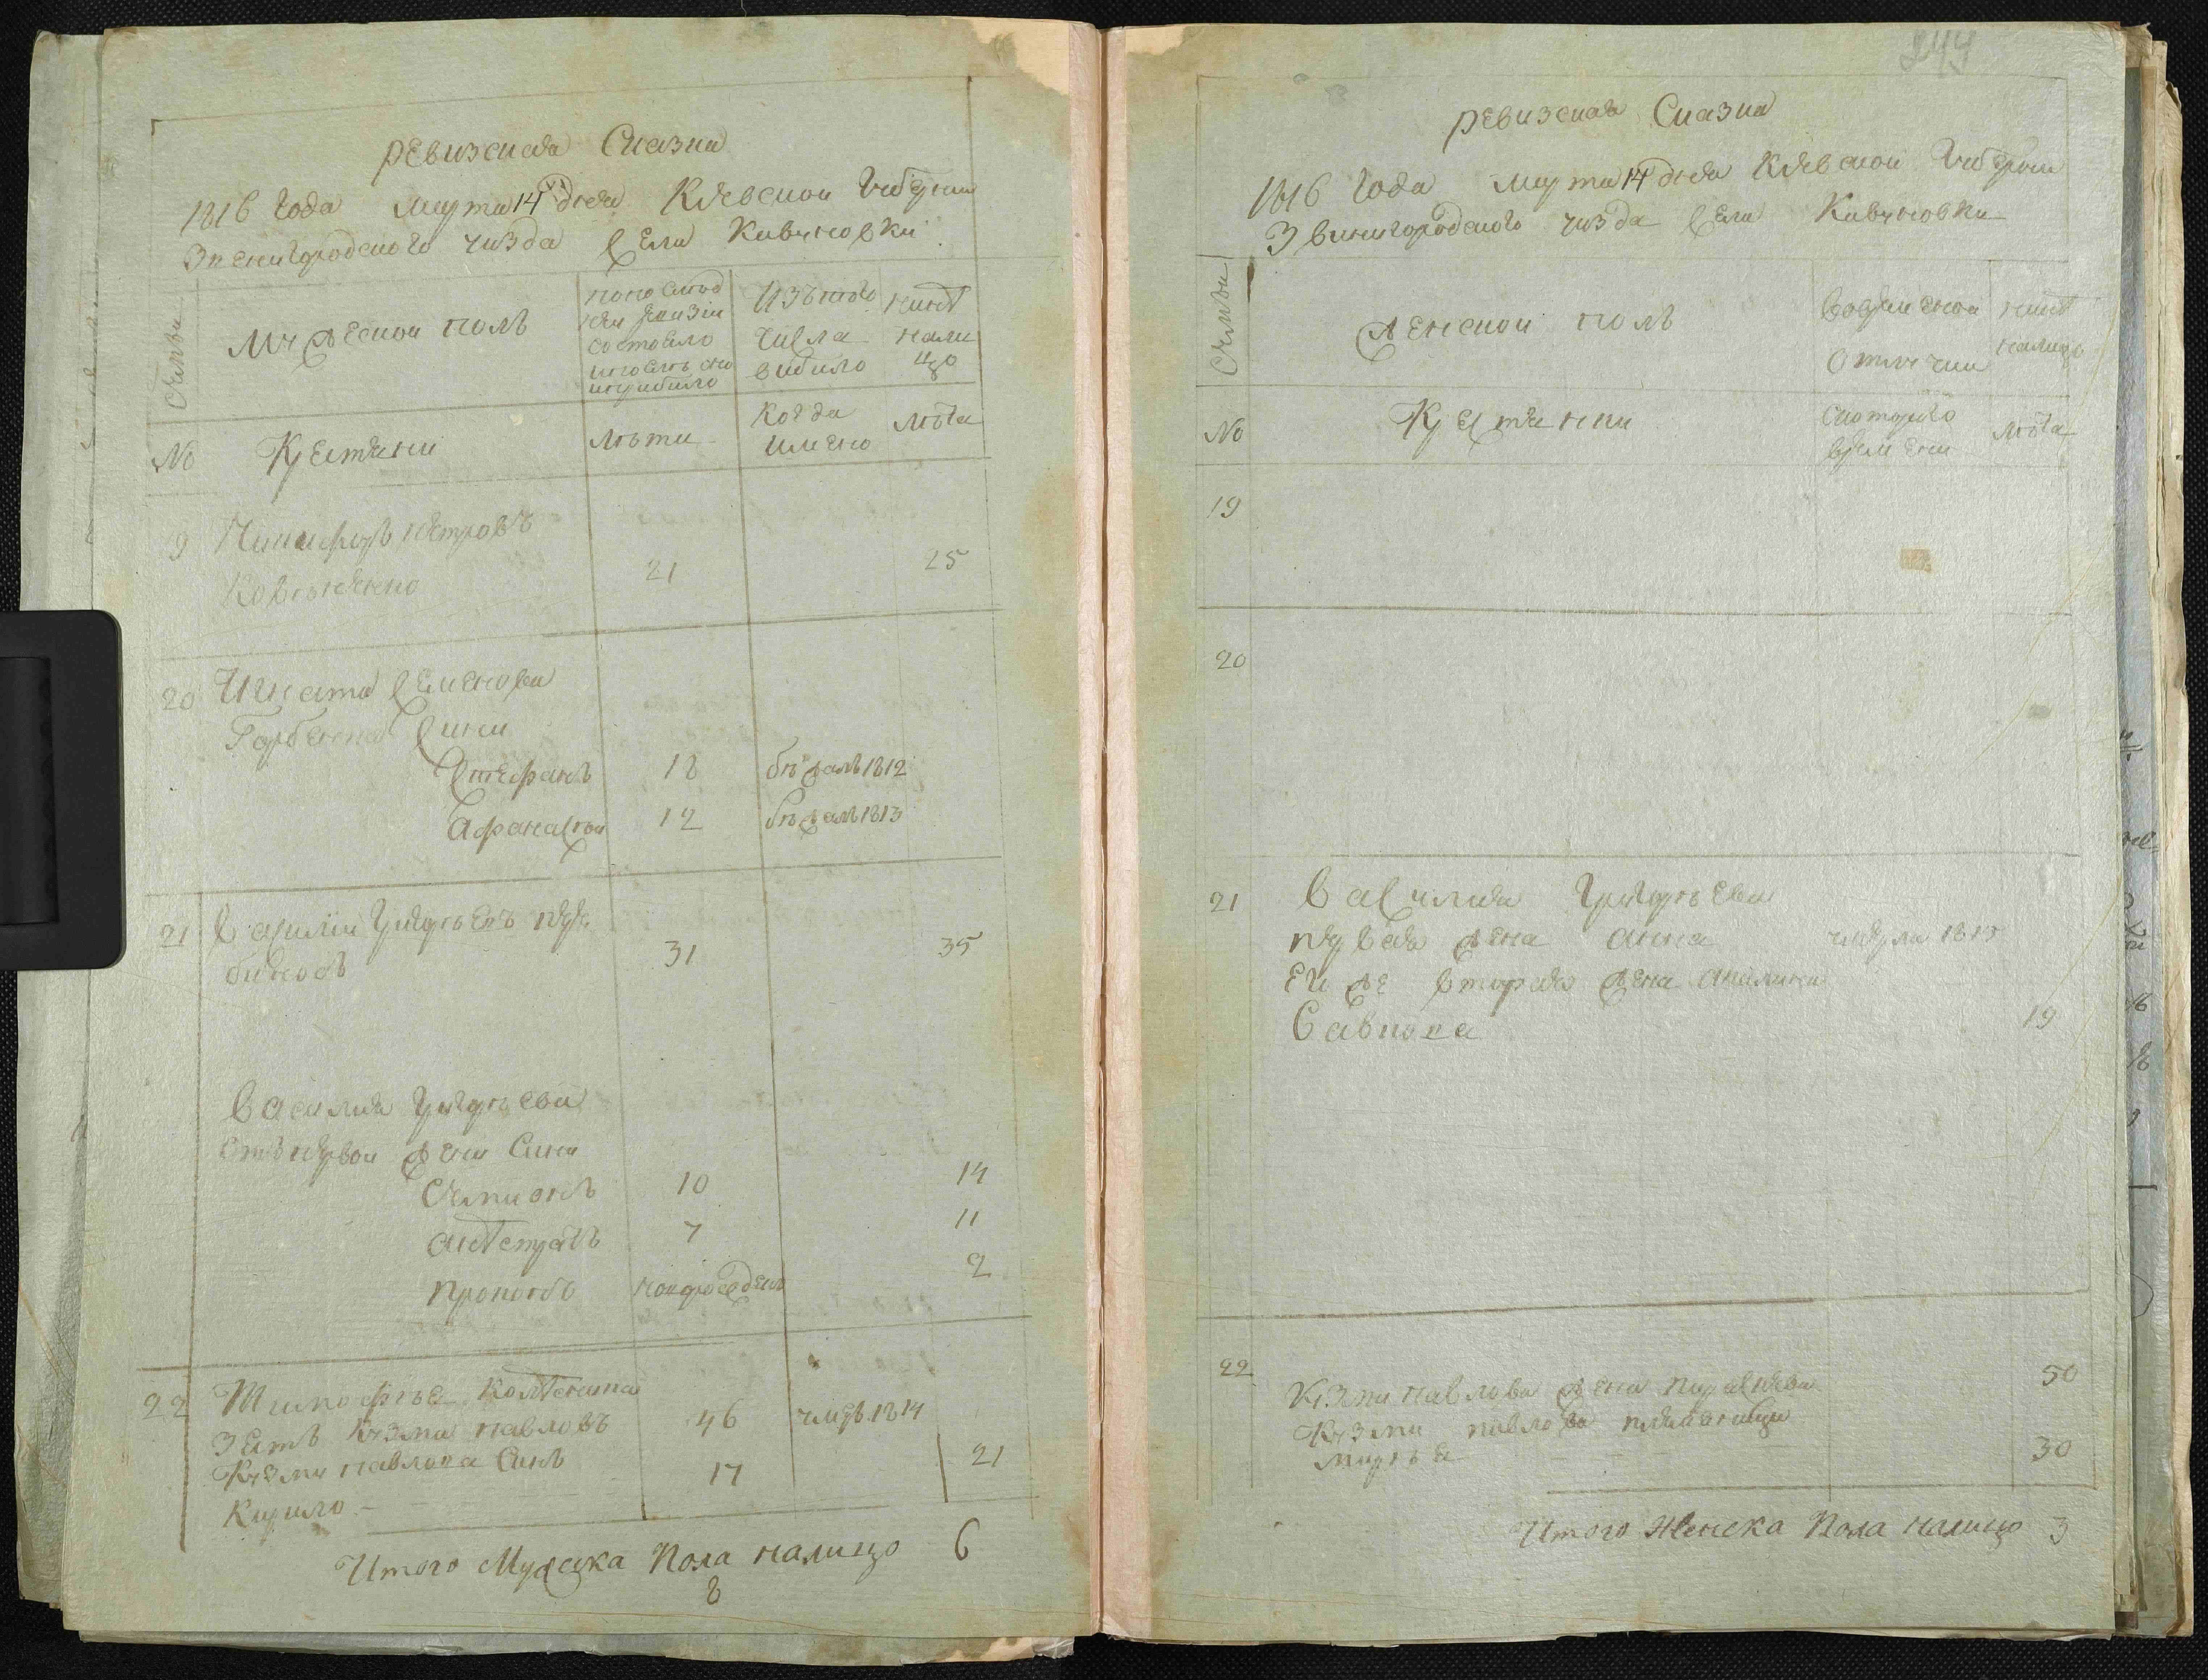 ревизская Сказка
1816 года марта 14 дня Киевской Губернии
Звенигородского уизда села Кивчновки
Семьи
Мужеской полъ
по последней ревизіи состояло и после оно прибыло
Изъ того числа выбило
ныне налицо
№
Крестяни
лѣти
Когда имено
лѣта
9 Никифоръ Петровъ
21 25
20 Игната Семенова
Гарбена сини
Стефанъ 18 бѣжалъ 1812
Афанасіи 12 бѣжалъ 1813
21 Василіи Григорьевъ
31 35
Василия Григорьева
Отъ первой жени Сини
Семионъ 10 14
7 11
прокопъ новорожденъ 2
22 Тимофѣя
зять Кузма павловъ 46 умръ 1814
Кузми павлова Синъ 17 21
Кирило
Итого Мужеска Пола налицо 6
8
244
ревизская Сказка
1816 года марта 14 дня Киевской Губернии
Звинигородского уизда села Кивчновки
Семьи
Женской полъ
вовременой отлучки
ныне налицо
№
Крестянки
Скоторого времени
лѣта
19
20
21 Василия Григорьева
первая жена анна умерла 1815
Его же вторая жена
Савкова 19
22
Кузми павлова жена 50
Кузми павлова племяница
марья 30
Итого Женска Пола налицо 3